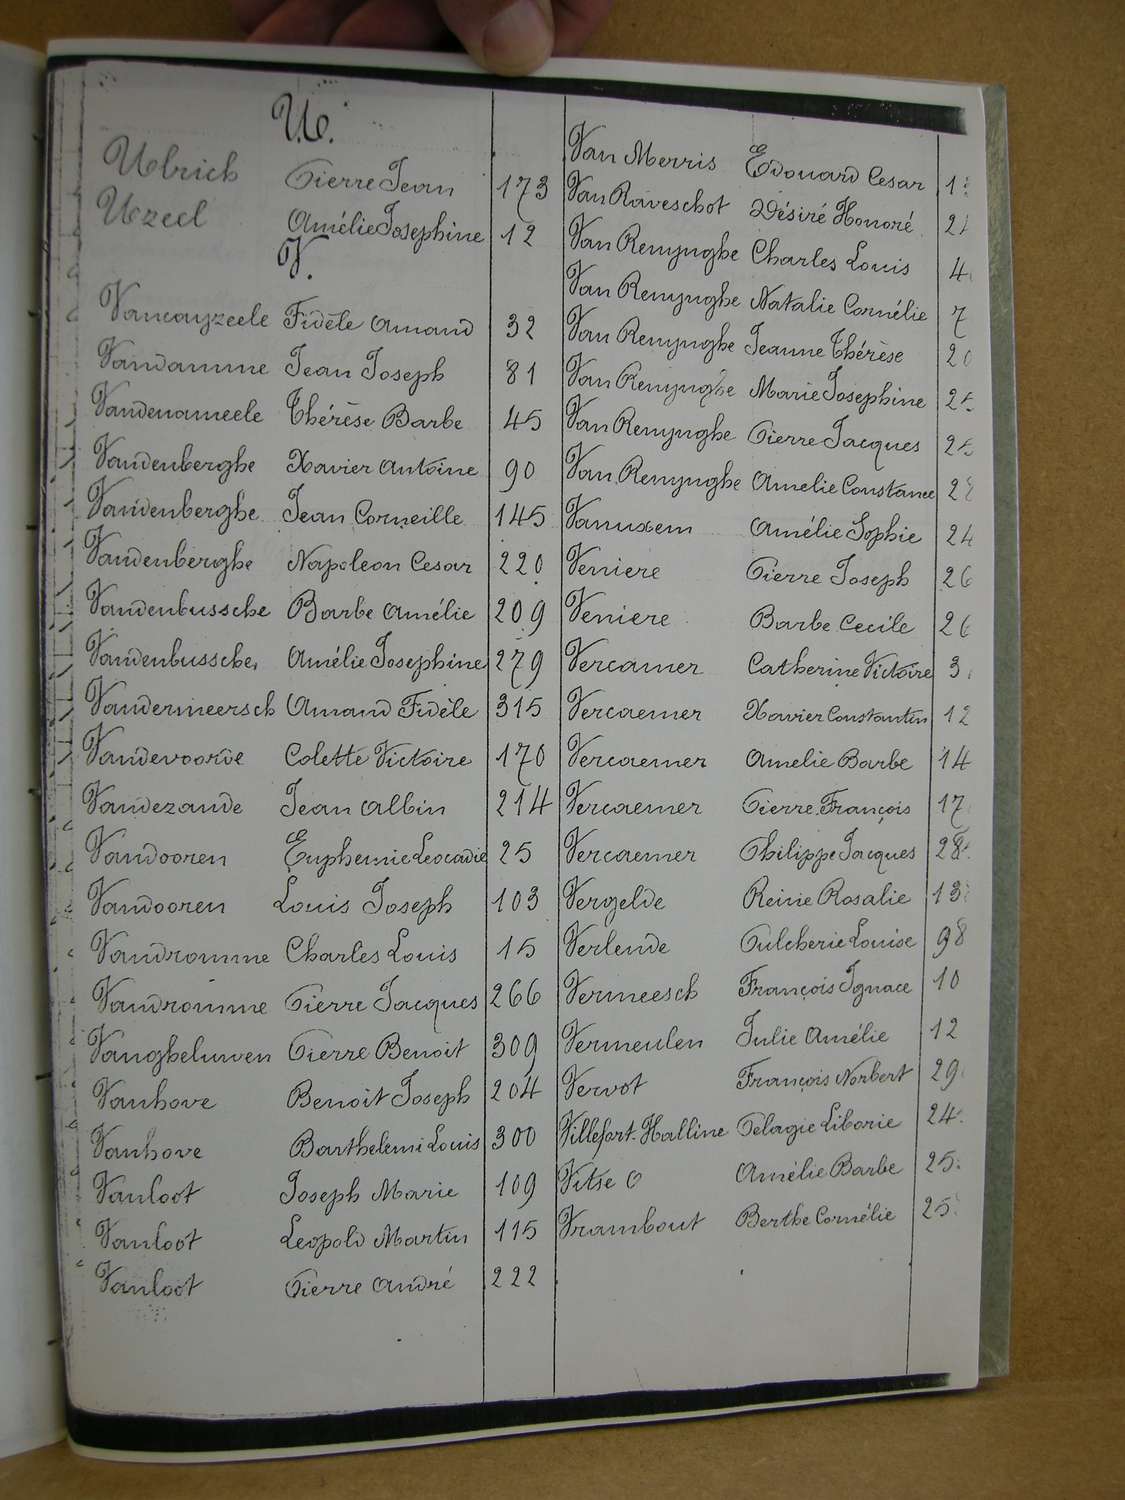 U.
Ulrich Pierre Jean 173
Uzeel Amélie Josephine 12
V.
Vancayzeele Fidèle Amand 32
Vandamme Jean Joseph 81
Vandenameele Thérèse Barbe 45
Vandenberghe Xavier Antoine 90
Vandenberghe Jean Corneille 145
Vandenberghe Napoleon Cesar 220
Vandenbussche Barbe Amélie 209
Vandenbussche Amélie Josephine 279
Vandermeersch Amand Fidèle 315
Vandevoorde Colette Victoire 170
Vandezande Jean Albin 214
Vandooren Euphemie Leocadie 25
Vandooren Louis Joseph 103
Vandromme Charles Louis 15
Vandromme Pierre Jacques 266
Vangheluwen Pierre Benoit 309
Vanhove Benoit Joseph 204
Vanhove Barthelemi Louis 300
Vanloot Joseph Marie 109
Vanloot Leopold Martin 115
Vanloot Pierre André 222
Van Merris Edouard Cesar
Van Raveschot Désiré Honoré
Van Renynghe Charles Louis
Van Renynghe Natalie Cornélie
Van Renynghe Jeanne Thérèse
Van Renynghe Marie Josephine
Van Renynghe Pierre Jacques
Van Renynghe Amelie Constance
Vanuxem Amélie Sophie
Veniere Pierre Joseph
Veniere Barbe Cecile
Vercamer Catherine Victoire
Vercaemer Xavier Constantin 12
Vercaemer Amelie Barbe 14
Vercaemer Pierre François 17
Vercaemer Philippe Jacques
Vergelde Reine Rosalie
Verlende Pulcherie Louise 98
Vermeesch François Ignace 10
Vermeulen Julie Amélie 12
Vervot François Norbert
Villefort-Halline Pelagie Liborie
Vitse O Amélie Barbe
Vrambout Berthe Cornélie